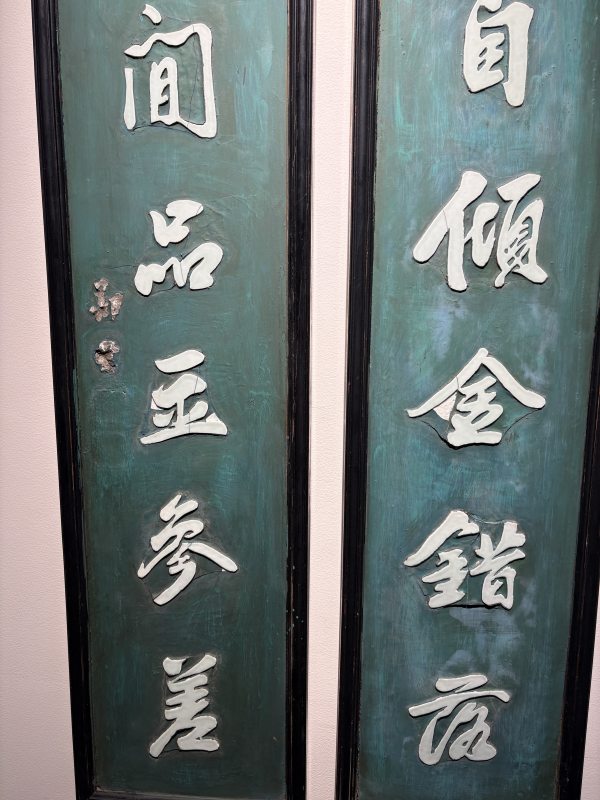 自傾金錯落
閒品玉參差